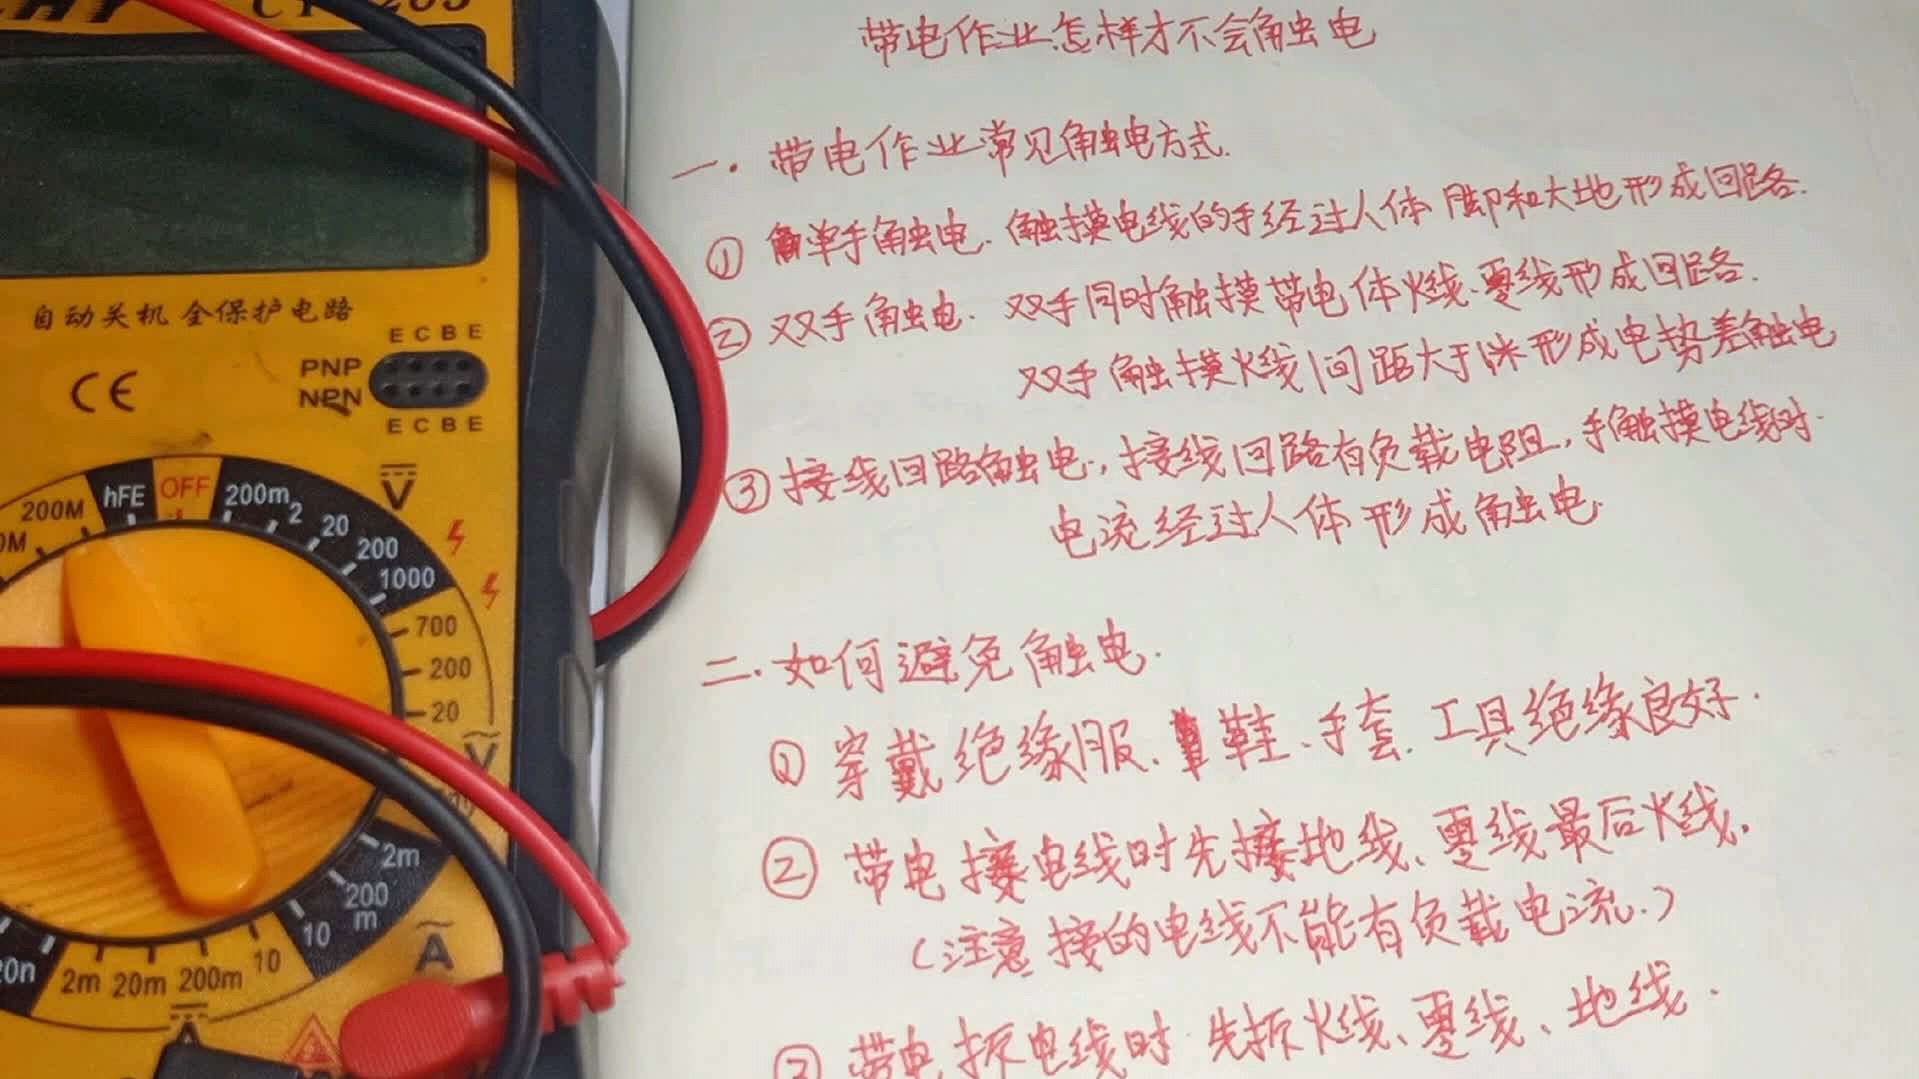 带电作业怎样才不会触电
一.带电作业常见触电方式.
① 单手触电.触摸电线的手经过人体脚和大地形成回路.
② 双手触电.双手同时触摸带电体火线、零线形成回路.
双手触摸火线间距大于1米形成电势差触电
③接线回路触电,接线回路有负载电阻,手触摸电线时.
电流经过人体形成触电.
二.如何避免触电.
① 穿戴绝缘服、鞋、手套.工具绝缘良好.
② 带电接电线时先接地线、零线最后火线,
(注意接的电线不能有负载电流.)
③ 带电拆电线时.先拆火线、零线、地线.
自动关机 全保护电路
E C B E
PNP
NPN
E C B E
CE
200M
hFE
OFF
200m
2
20
200
1000
V
700
200
20
V
2m
200
m
10
A
10
200m
20m
2m
A